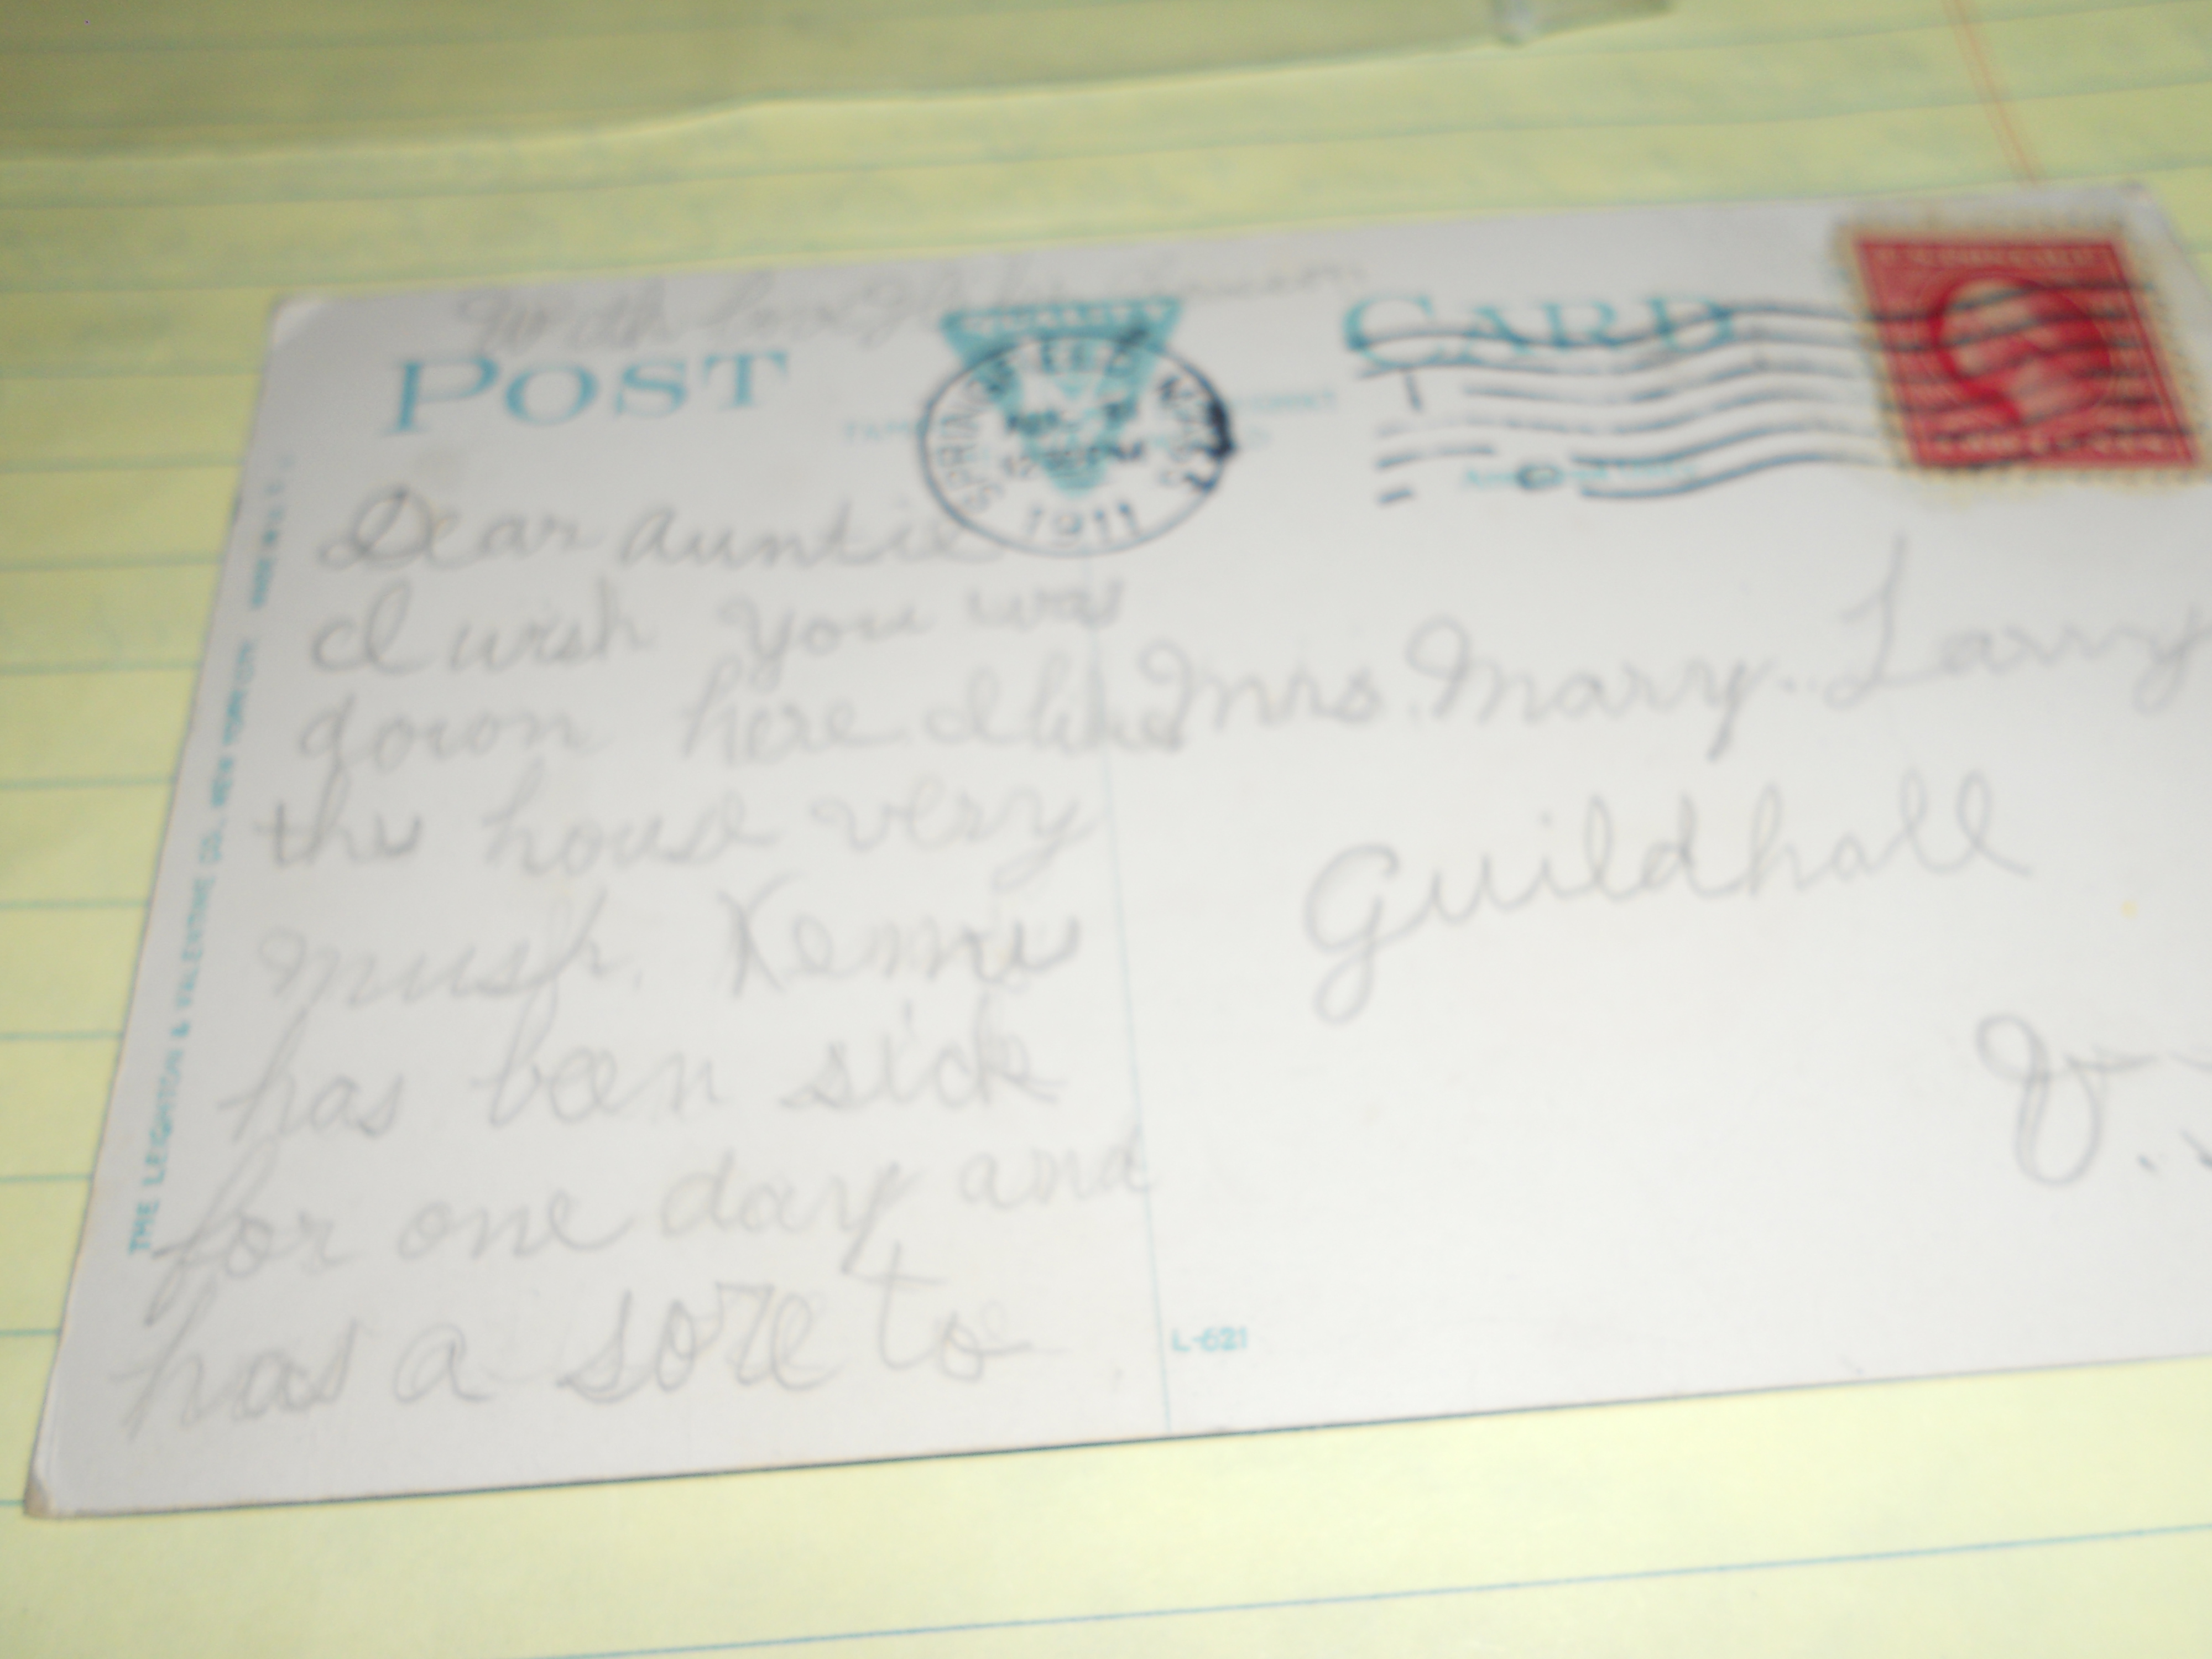 With love
POST CARD
QUALITY
SPRINGFIELD
1911
Dear auntie
I wish you was
down here I like
the house very
mush.
has been sick
for one day and
has a sore to
Mrs. Mary. Larry
Guildhall
V.
THE LEIGHTON & VALENTINE CO., NEW YORK CITY
L-621